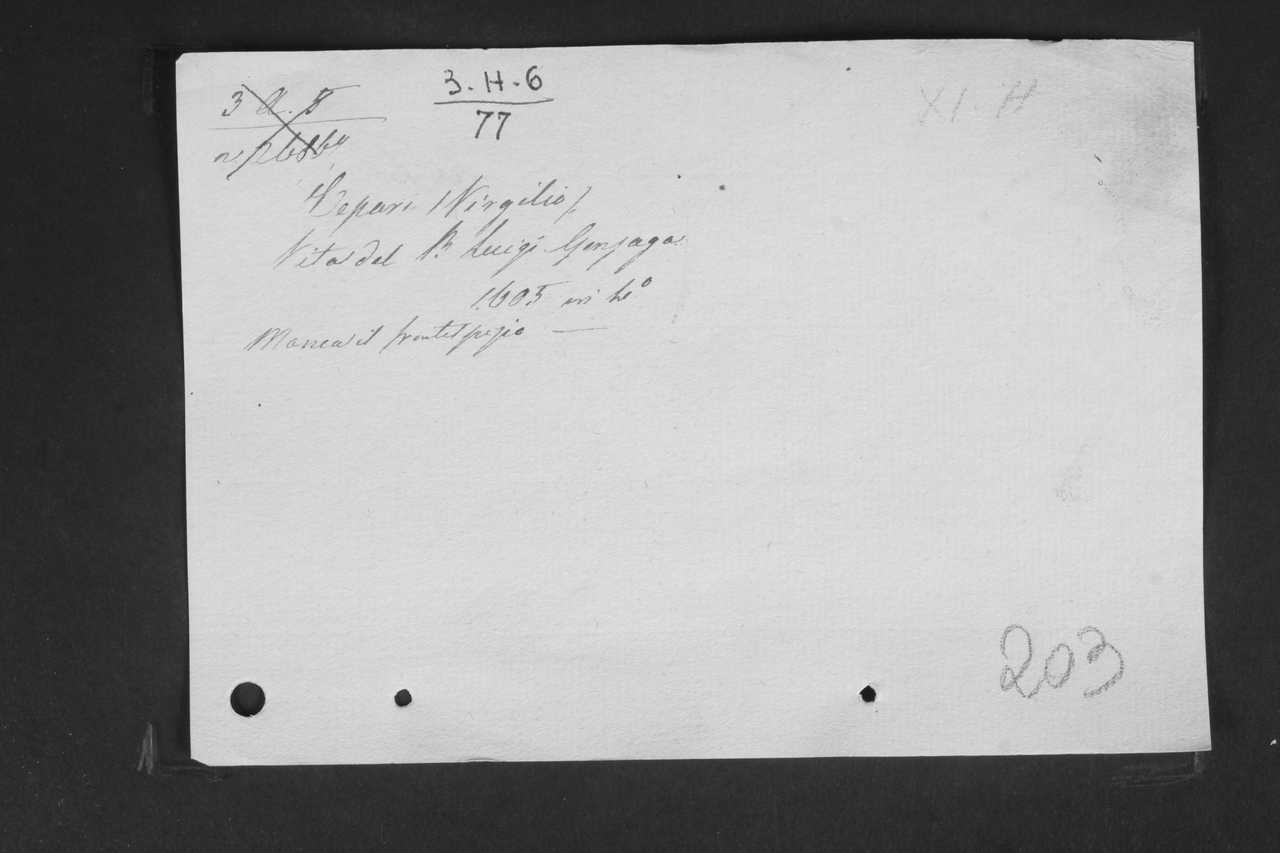 3.H.6
77
XI. H
Cepari (Virgilio)
Vita del B. Luigi Gonzaga
1605 in 4º
Manca il frontespizio —
203